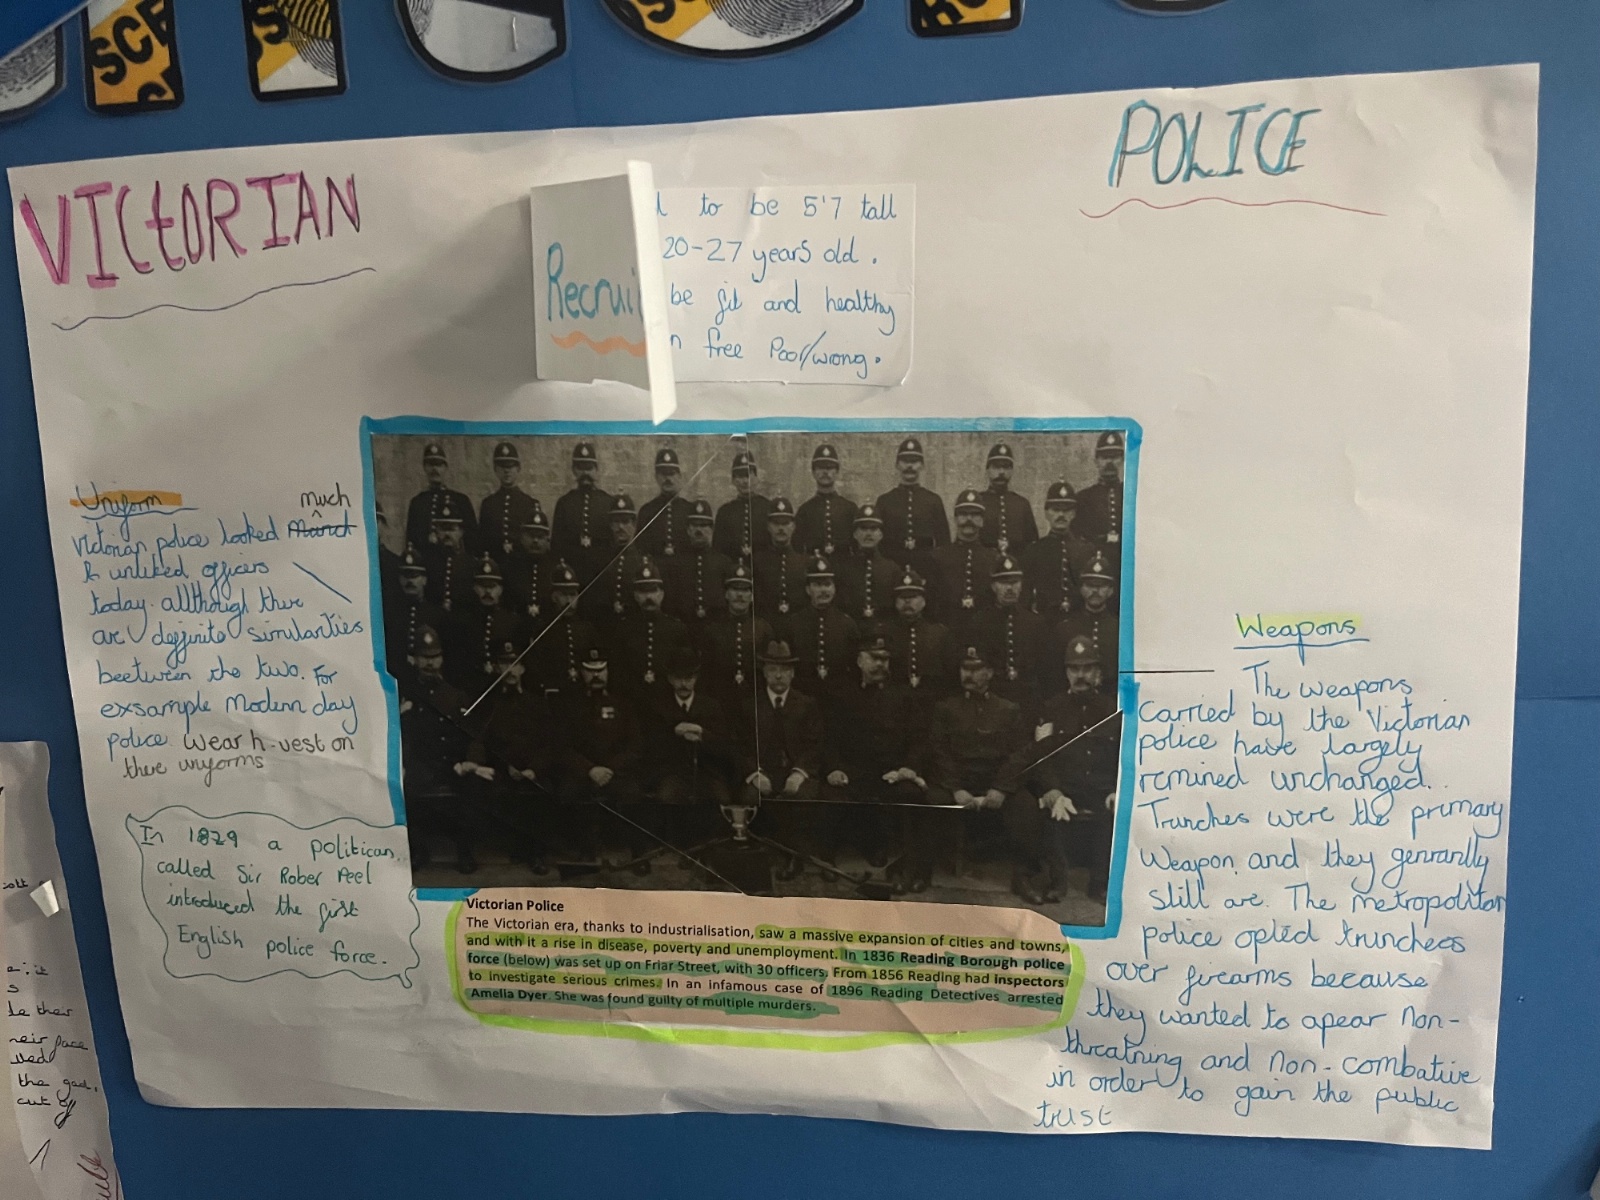 SCE
VICtORIAN
POLICE
Recrui
to be 5'7 tall
20-27 years old.
be fit and healthy
n free Poor/wrong.
Uniform
much
Victorian police looked
unliked officers
today. allthough there
are deffinite similarities
beetween the two. For
exsample Modern day
police wear h-vest on
there unyorms
In 1829 a politican
called Sir Rober Peel
introduced the first
English police force.
Victorian Police
The Victorian era, thanks to industrialisation, saw a massive expansion of cities and towns,
and with it a rise in disease, poverty and unemployment. In 1836 Reading Borough police
force (below) was set up on Friar Street, with 30 officers. From 1856 Reading had inspectors
to investigate serious crimes. In an infamous case of 1896 Reading Detectives arrested
Amelia Dyer. She was found guilty of multiple murders.
Weapons
The weapons
Carried by the Victorian
police have largely
remined unchanged.
Trunches were the primary
Weapon and they genranlly
still are. The metropolitan
police opted trunchees
over firearms because
they wanted to apear non-
threatning and non-combative
in order to gain the public
trust
the gad,
cut off